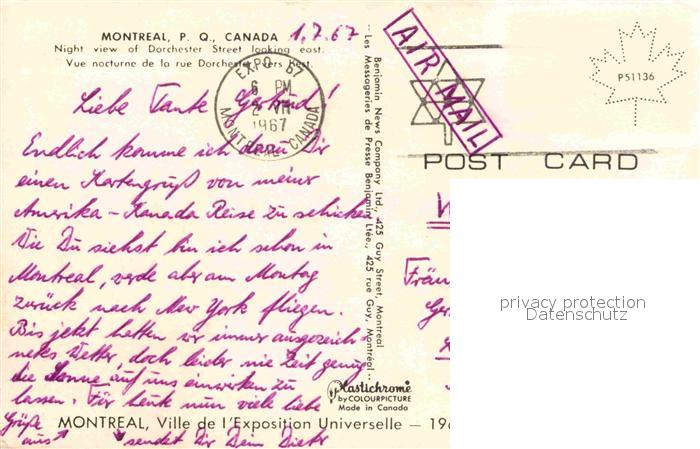 MONTREAL, P. Q., CANADA 1.7.67
Night view of Dorchester Street looking east.
Vue nocturne de la rue Dorchester vers l'est.
EXPO 67
6 PM
2 VII
1967
MONTREAL CANADA
AIR MAIL
P51136
POST CARD
Liebe Tante Gertrud!
Endlich komme ich dazu Dir
einen Kartengruß von meiner
Amerika-Kanada Reise zu schicken
Wie Du siehst bin ich schon in
Montreal, werde aber am Montag
zurück nach New York fliegen.
Bis jetzt hatten wir immer ausgezeich-
netes Wetter, doch leider nie Zeit genug
die Sonne auf uns einwirken zu
lassen. Für heute nun viele liebe
Grüße
aus sendet Dir Dein Dieter
MONTREAL, Ville de l'Exposition Universelle – 196
Benjamin News Company Ltd., 425 Guy Street, Montreal
Les Messageries de Presse Benjamin Ltée., 425 rue Guy, Montréal
Plastichrome
by COLOURPICTURE
Made in Canada
Fräu
Ger
privacy protection
Datenschutz